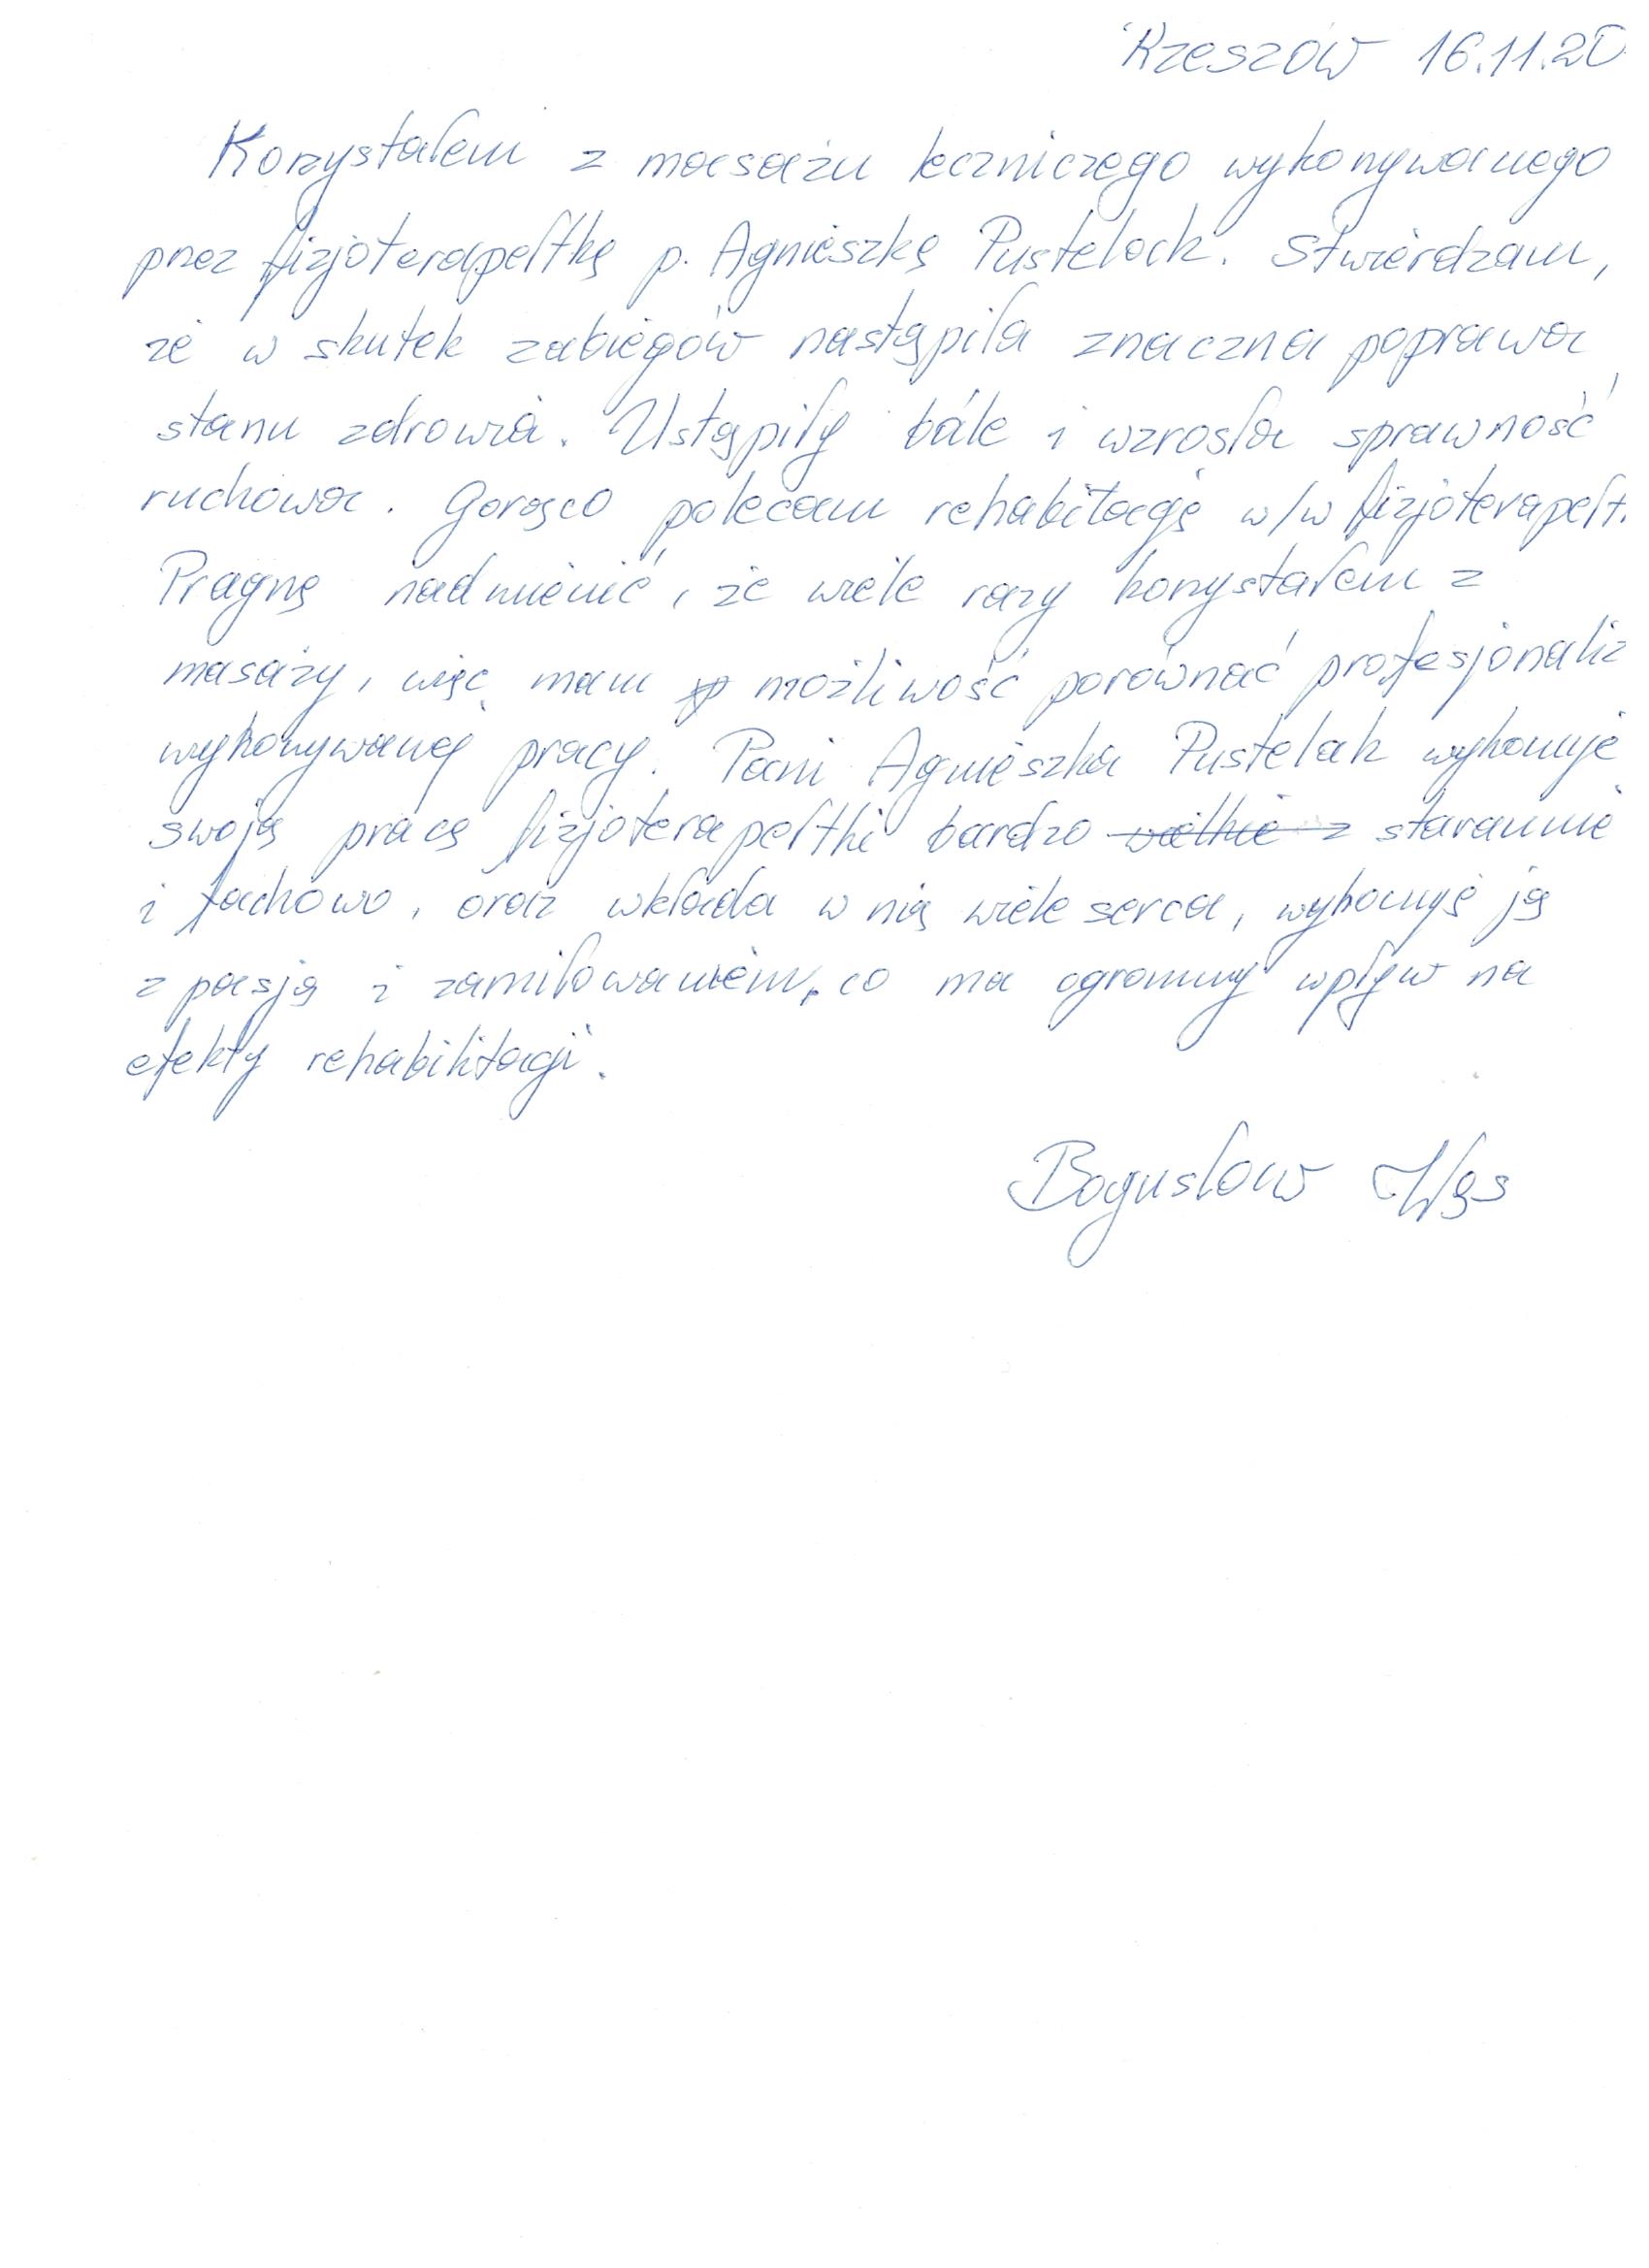 Rzeszów 16.11.20
Korzystałem z masażu leczniczego wykonywanego
przez fizjoterapełtkę p. Agnieszkę Pustelak. Stwierdzam,
że w skutek zabiegów nastąpiła znaczna poprawa
stanu zdrowia. Ustąpiły bóle i wzrosła sprawność
ruchowa. Gorąco polecam rehabilitację w/w fizjoterapełt
Pragnę nadmienić, że wiele razy korzystałem z
masaży, więc mam możliwość porównać profesjonaliz
wykonywanej pracy. Pani Agnieszka Pustelak wykonuje
swoją pracę fizjoterapełtki bardzo wielkie z starannie
i fachowo, oraz wkłada w nią wiele serca, wykonuję ją
z pasją i zamiłowaniem, co ma ogromny wpływ na
efekty rehabilitacji.
Bogusław Wąs